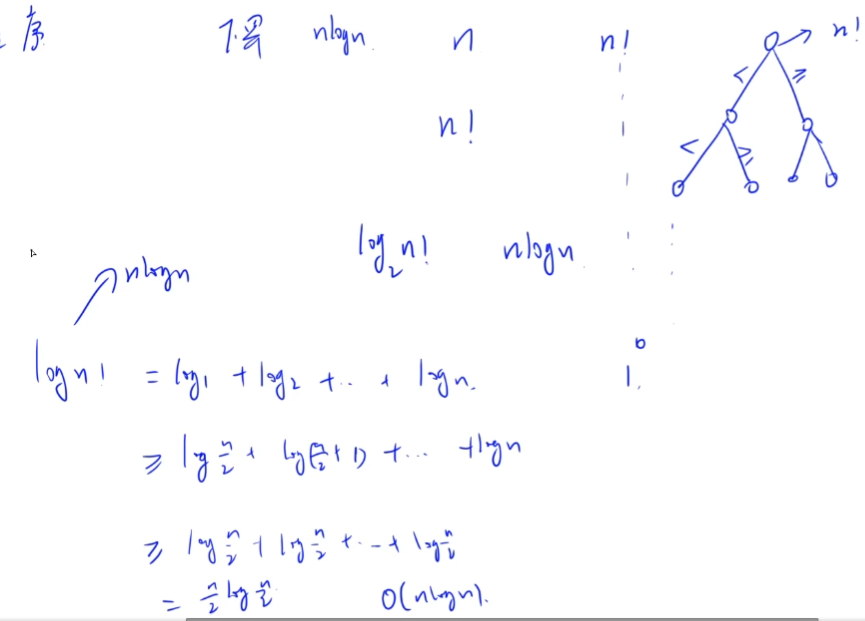 序 下界 nlogn n n! n!
< ≥
n!
< ≥
log₂n! nlogn
nlogn
0
logn! = log1 + log2 + ... + logn. 1.
≥ log n/2 + log(n/2 + 1) + ... + logn
≥ log n/2 + log n/2 + ... + log n/2
= n/2 log n/2 O(nlogn).